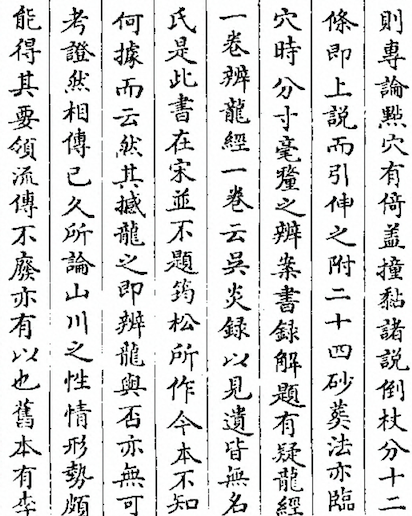 則專論㸃穴有倚盖撞黏諸説倒杖分十二
條即上説而引伸之附二十四砂葬法亦臨
穴時分寸毫釐之辨案書録解題有疑龍經
一卷辨龍經一卷云吳炎録以見遺皆無名
氏是此書在宋並不題筠松所作今本不知
何據而云然其撼龍之即辨龍與否亦無可
考證然相傳已久所論山川之性情形勢頗
能得其要領流傳不廢亦有以也舊本有李